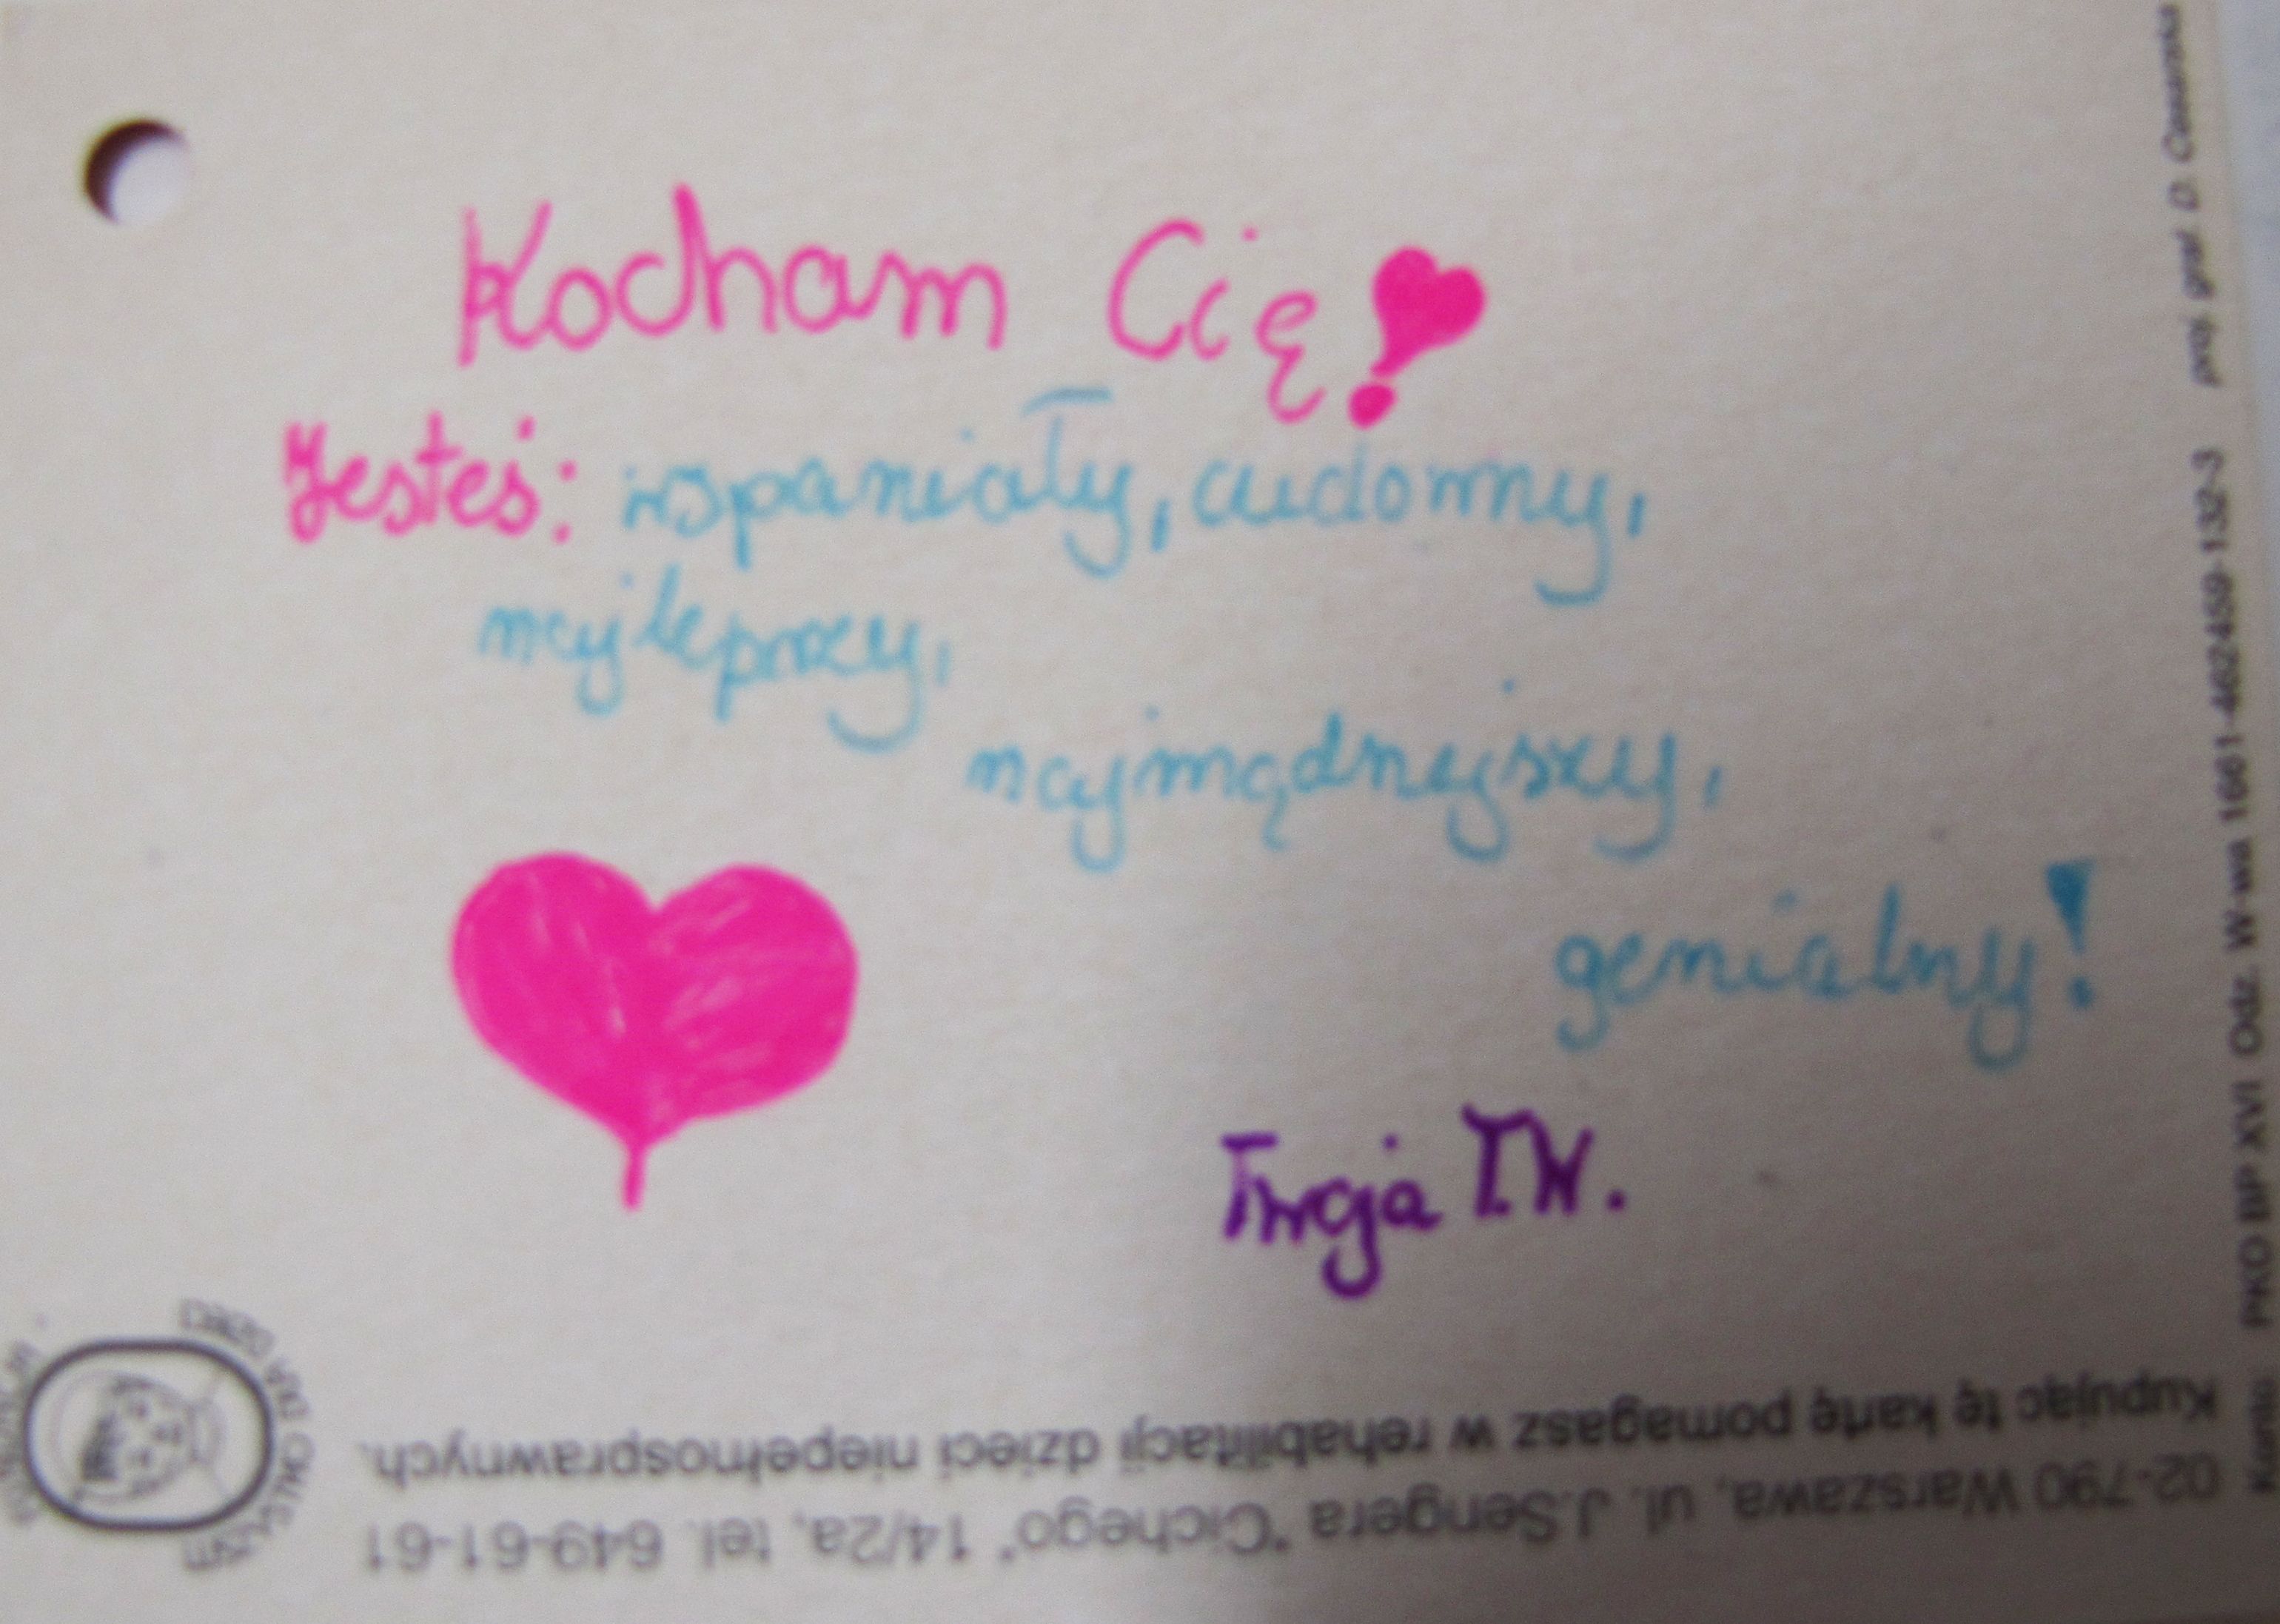 Kocham Cię!
Jesteś: wspaniały, cudowny,
najlepszy,
najmądrzejszy,
genialny!
Twoja T.W.
Kupując tę kartę pomagasz w rehabilitacji dzieci niepełnosprawnych.
02-790 Warszawa, ul. J.Sengera "Cichego" 14/2a, tel. 649-61-61
Konto PKO BP XVI Odz. W-wa 1661-462459-132-3 proj. graf. D.